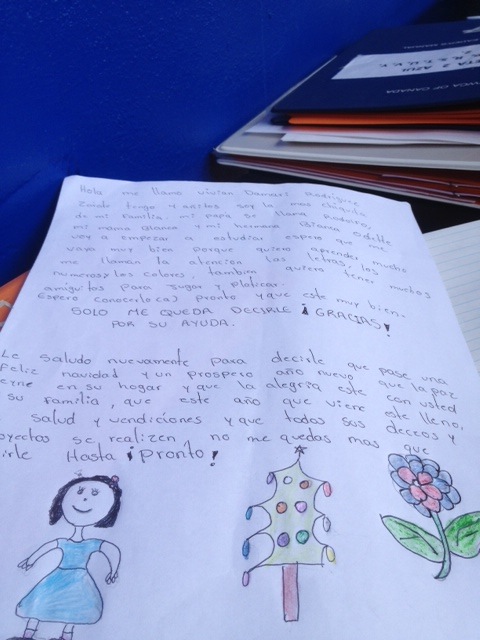 Hola me llamo vivian Damari Rodrigue
Zando tengo 4 anitos soy la mas chiquita
de mi familia, mi papa se llama Rodolfo,
mi mama Blanca y mi hermana Bianca Odette
voy a empezar a estudiar espero que me
vaya muy bien porque quiero aprender mucho
me llaman la atencion las letras, los
numeros y los colores, tambien quiero tener muchos
amiguitos para jugar y platicar.
Espero conocerlo(a) pronto y que este muy bien.
SOLO ME QUEDA DECIRLE ¡GRACIAS!
POR SU AYUDA.
Le saludo nuevamente para decirle que pase una
Feliz navidad y un prospero año nuevo que la paz
eyne en su hogar y que la alegria este con usted
su familia, que este año que viene este lleno,
salud y vendiciones y que todos sus deceos y
oyectos se realizen, no me quedas mas que
irle Hasta ¡pronto!
TA 2 AZUL
R.S.T.U.V.Y.
OF CANADA